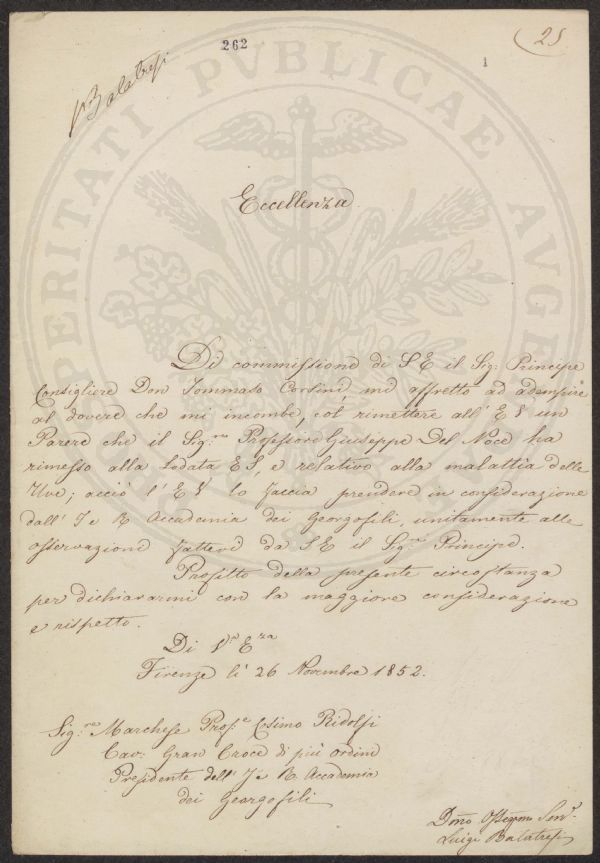 262
25
1
V. Balatresi
Eccellenza
Di commissione di S E il Sig: Principe
Consigliere Don Tommaso Corsini, mi affretto ad adempire
al dovere che mi incombe, col rimettere all' E V un
Parere che il Sig:re Professore Giuseppe Del Noce ha
rimesso alla Lodata E S, e relativo alla malattia delle
Uve; acciò l' E V lo faccia prendere in considerazione
dall' I e R Accademia dei Georgofili, unitamente alle
osservazioni fattevi da S E il Sig:re Principe.
Profitto della presente circostanza
per dichiararmi con la maggiore considerazione
e rispetto.
Di V.a E.za
Firenze li 26 Novembre 1852.
Sig:re Marchese Prof.e Cosimo Ridolfi
Cav: Gran Croce di più ordini
Presidente dell' I e R Accademia
dei Georgofili
Dmo Obbmo Serv.e
Luigi Balatresi
PROSPERITATI PVBLICAE AVGENDAE